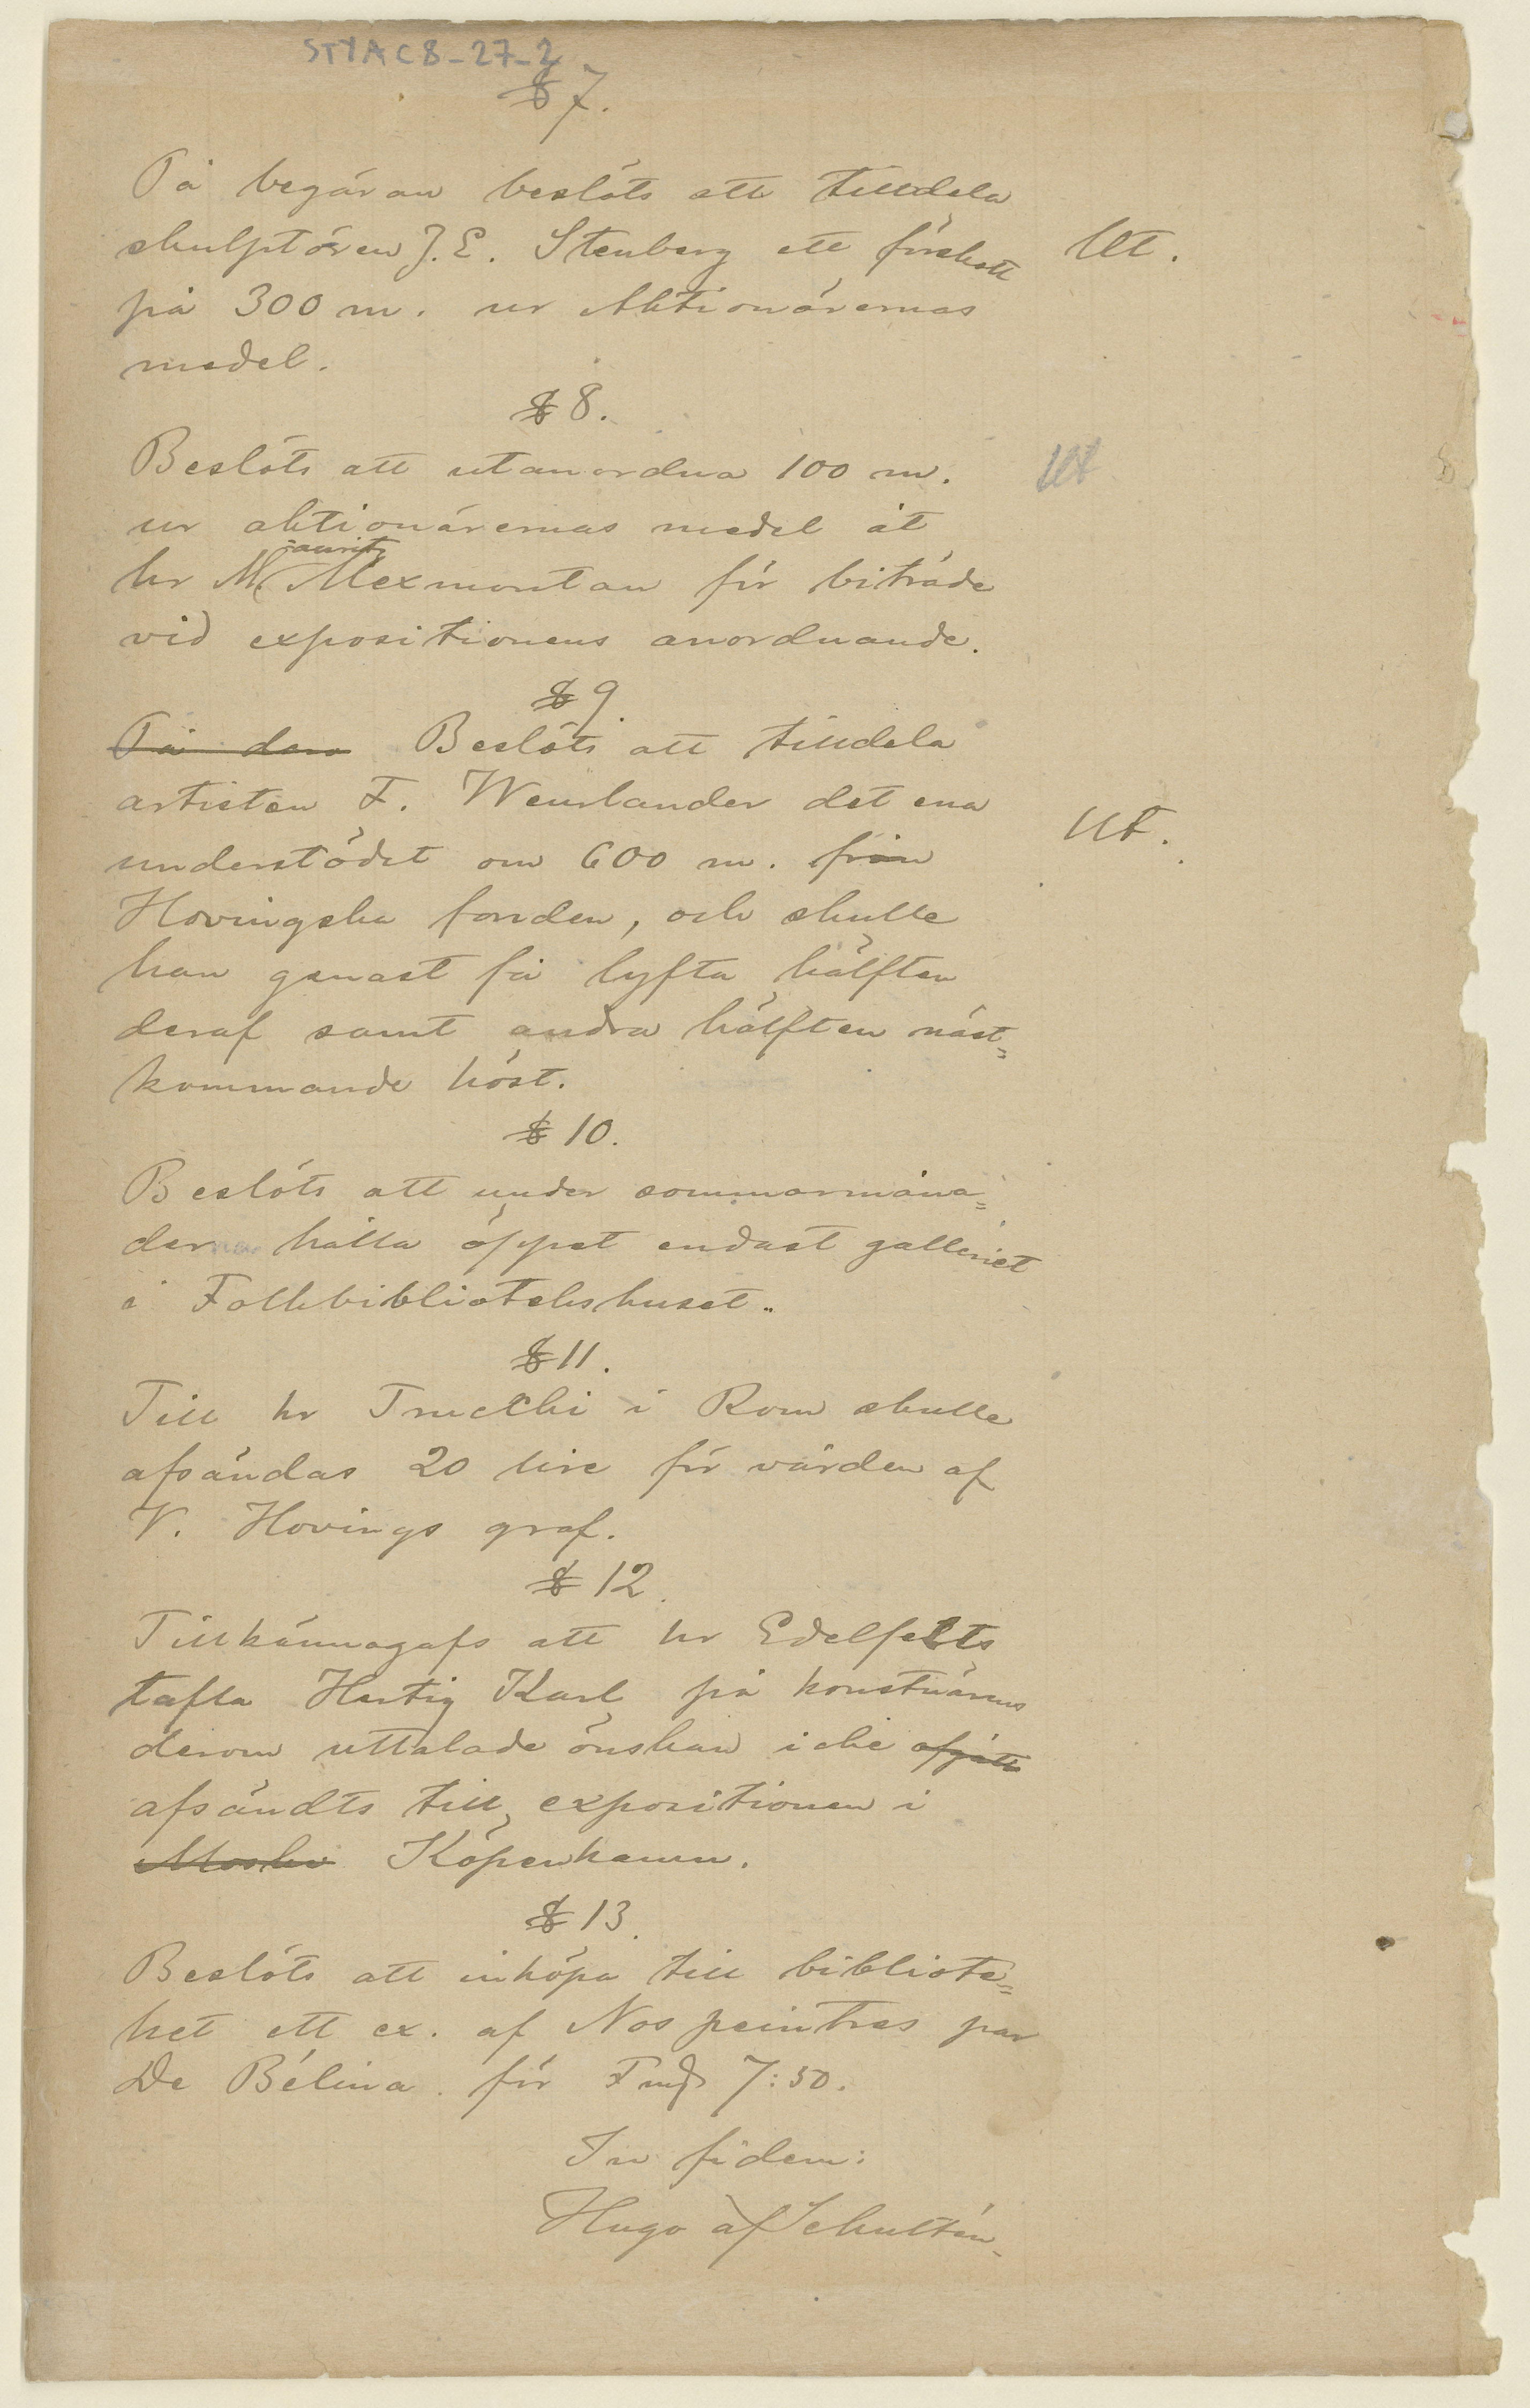 STYA C8-27-2
§ 7.
På begäran beslöts att tilldela
skulptören J. E. Stenberg ett förskott Ut.
på 300 m. ur Aktionärernas
medel.
§ 8.
Beslöts att utanordna 100 m. Ut
ur aktionärernas medel åt
hr Mauritz Mexmontan för biträde
vid expositionens anordnande.
§ 9.
På den Beslöts att tilldela
artisten F. Wennlander det ena
understödet om 600 m. från Ut.
Hovingska fonden, och skulle
han genast få lyfta hälften
deraf samt andra hälften näst=
kommande höst.
§ 10.
Beslöts att under sommarmåna=
derna hålla öppet endast galleriet
i Folkbibliotekshuset.
§ 11.
Till hr Trucchi i Rom skulle
afsändas 20 lire för vården af
V. Hovings graf.
§ 12.
Tillkännagafs att hr Edelfelts
tafla Hertig Karl på konstnärens
derom uttalade önskan icke afgått
afsändts till expositionen i
Moskv Köpenhamn.
§ 13.
Beslöts att inköpa till bibliote=
ket ett ex. af Nos peintres par
De Bélina för Fmk 7:50.
In fidem:
Hugo af Schultén.